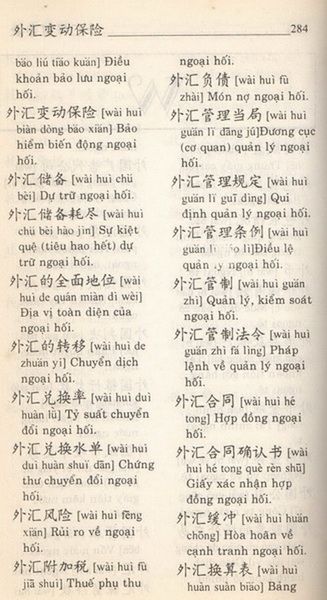 外汇变动保险 284
băo liú tiáo kuăn] Điều
khoản bảo lưu ngoại
hối.
外汇变动保险 [wài huì
biàn dòng băo xiăn] Bảo
hiểm biến động ngoại
hối.
外汇储备 [wài huì chŭ
bèi] Dự trữ ngoại hối.
外汇储备耗尽 [wài huì
chŭ bèi hào jìn] Sự kiệt
quệ (tiêu hao hết) dự
trữ ngoại hối.
外汇的全面地位 [wài
huì de quán miàn dì wèi]
Địa vị toàn diện của
ngoại hối.
外汇的转移 [wài huì de
zhuăn yí] Chuyển dịch
ngoại hối.
外汇兑换率 [wài huì duì
huàn lǜ] Tỷ suất chuyển
đổi ngoại hối.
外汇兑换水单 [wài huì
duì huàn shuĭ dān] Chứng
thư chuyển đổi ngoại
hối.
外汇风险 [wài huì fēng
xiăn] Rủi ro về ngoại
hối.
外汇附加税 [wài huì fù
jiā shuì] Thuế phụ thu
ngoại hối.
外汇负债 [wài huì fù
zhài] Món nợ ngoại hối.
外汇管理当局 [wài huì
guăn lĭ dāng jú]Đương cục
(cơ quan) quản lý ngoại
hối.
外汇管理规定 [wài huì
guăn lĭ guī dìng] Qui
định quản lý ngoại hối.
外汇管理条例 [wài huì
guăn lĭ lì]Điều lệ
quản lý ngoại hối.
外汇管制 [wài huì guăn
zhì] Quản lý, kiểm soát
ngoại hối.
外汇管制法令 [wài huì
guăn zhì fă lìng] Pháp
lệnh về quản lý ngoại
hối.
外汇合同 [wài huì hé
tong] Hợp đồng ngoại
hối.
外汇合同确认书 [wài
huì hé tong què rèn shū]
Giấy xác nhận hợp
đồng ngoại hối.
外汇缓冲 [wài huì huăn
chōng] Hòa hoãn về
cạnh tranh ngoại hối.
外汇换算表 [wài huì
huàn suàn biăo] Bảng